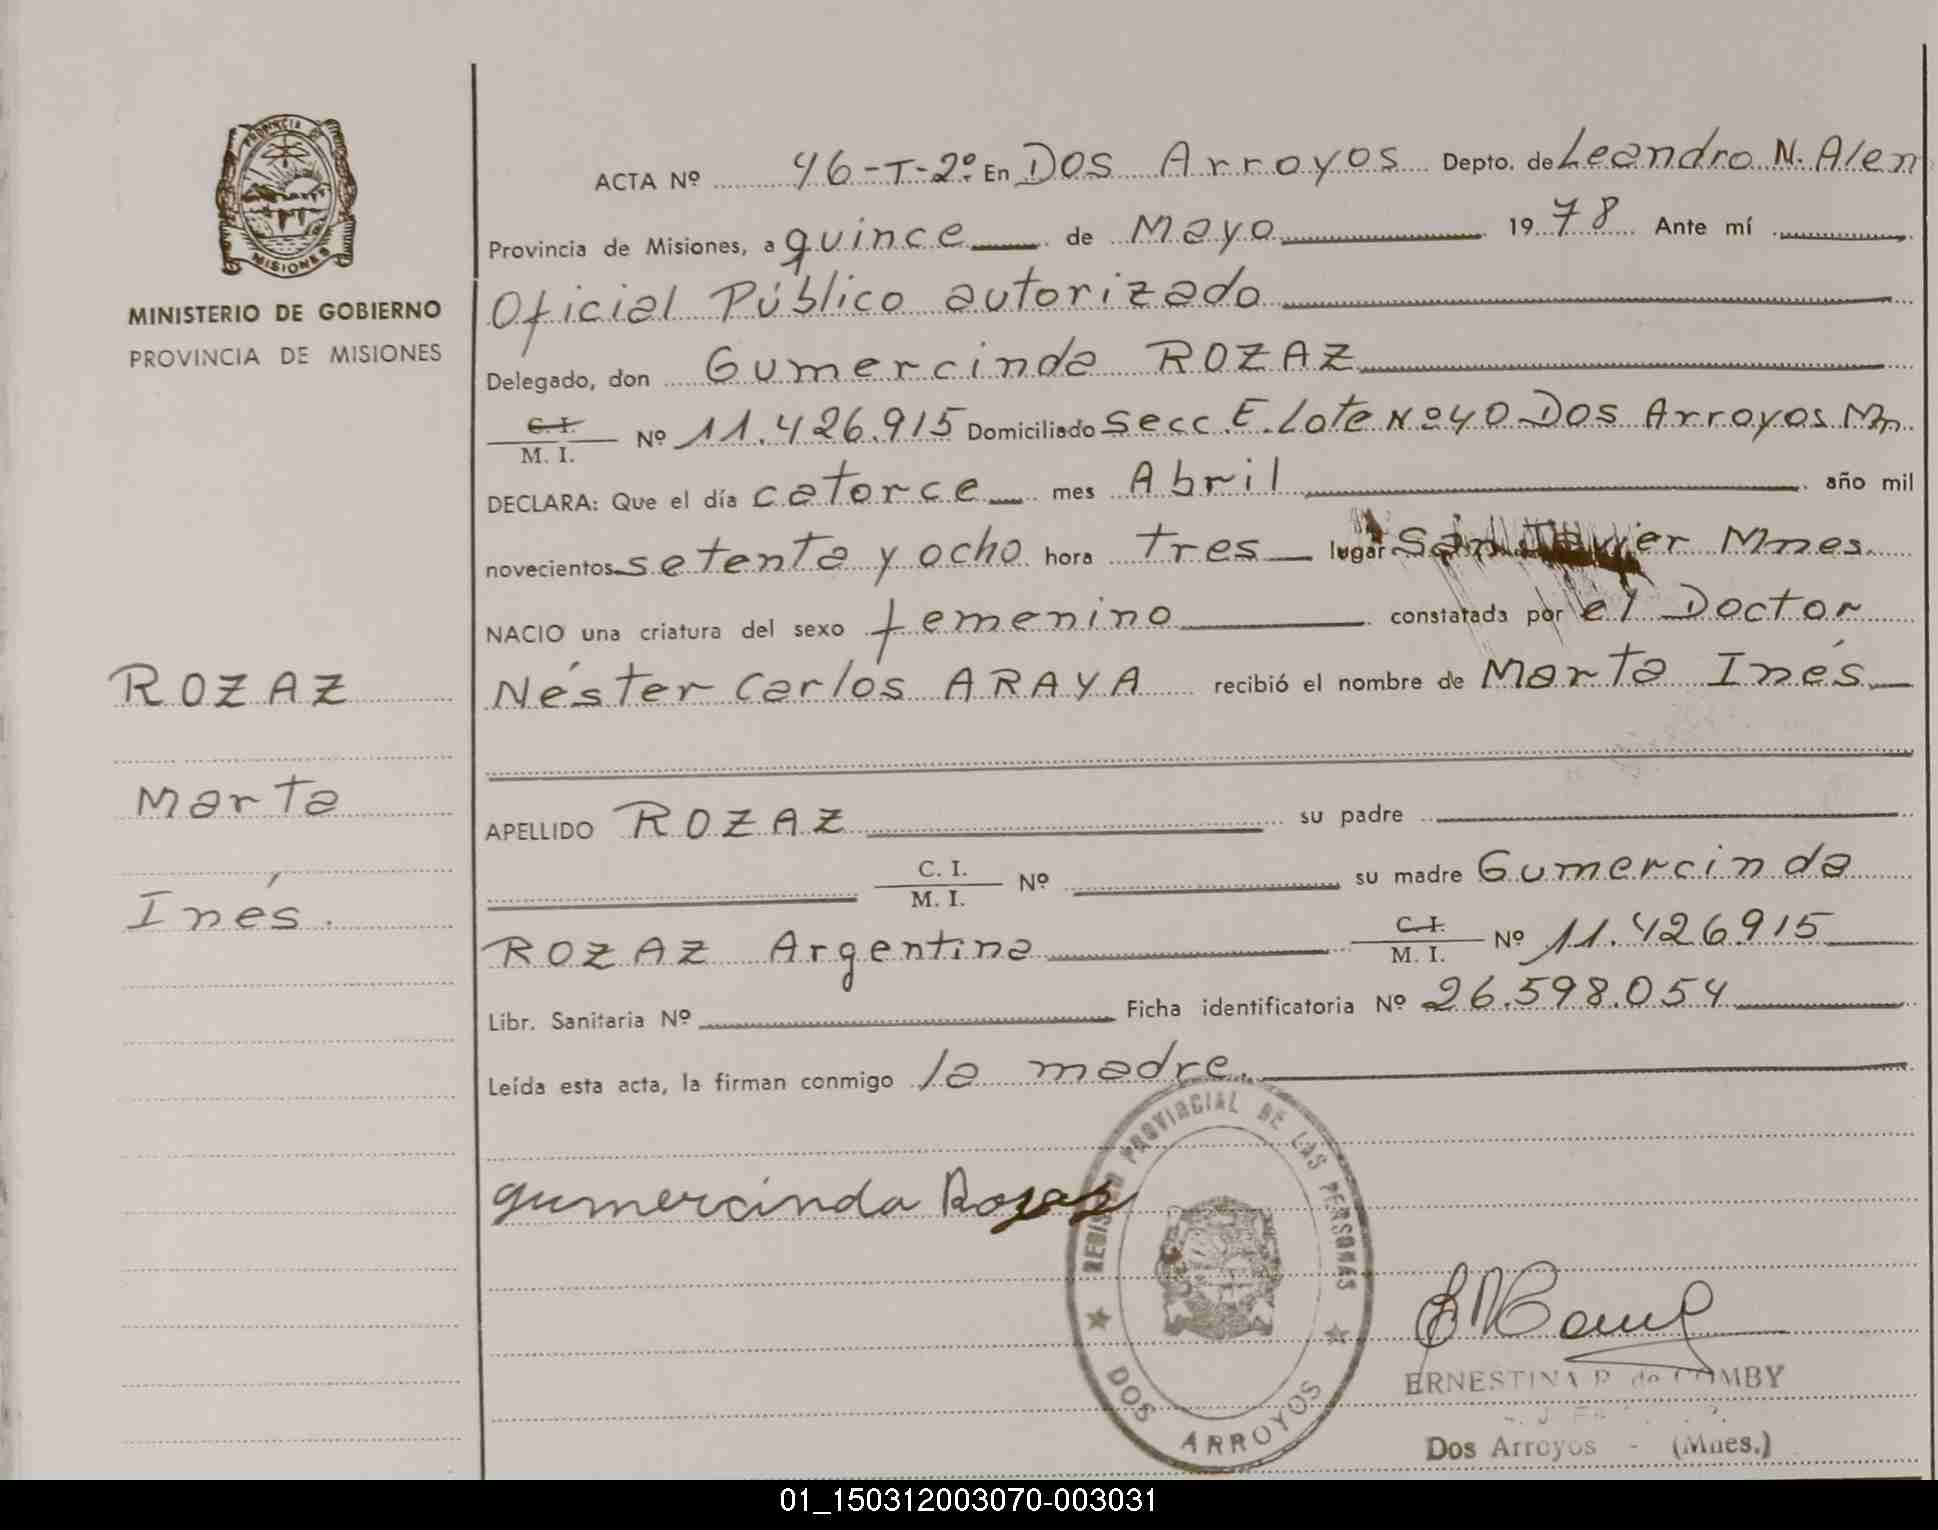 PROVINCIA DE
MISIONES
MINISTERIO DE GOBIERNO
PROVINCIA DE MISIONES
ROZAZ
Marta
Inés.
ACTA Nº 46-T-2º En Dos Arroyos Depto. de Leandro N. Alen
Provincia de Misiones, a quince de Mayo 1978 Ante mí
Oficial Público autorizado
Delegado, don Gumercinda ROZAZ
C. I.
M. I. Nº 11.426.915 Domiciliado Secc. E. Lote Nº 40 Dos Arroyos Mn.
DECLARA: Que el día catorce mes Abril año mil
novecientos setenta y ocho hora tres lugar San Javier Mnes.
NACIO una criatura del sexo femenino constatada por el Doctor
Néster Carlos ARAYA recibió el nombre de Marta Inés
APELLIDO ROZAZ su padre
C. I.
M. I. Nº su madre Gumercinda
ROZAZ Argentina C. I.
M. I. Nº 11.426915
Libr. Sanitaria Nº Ficha identificatoria Nº 26.598.054
Leída esta acta, la firman conmigo la madre.
gumercinda Rozaz
REGISTRO PROVINCIAL DE LAS PERSONAS
DOS ARROYOS
ERNESTINA P. de COMBY
Dos Arroyos - (Mnes.)
01_150312003070-003031